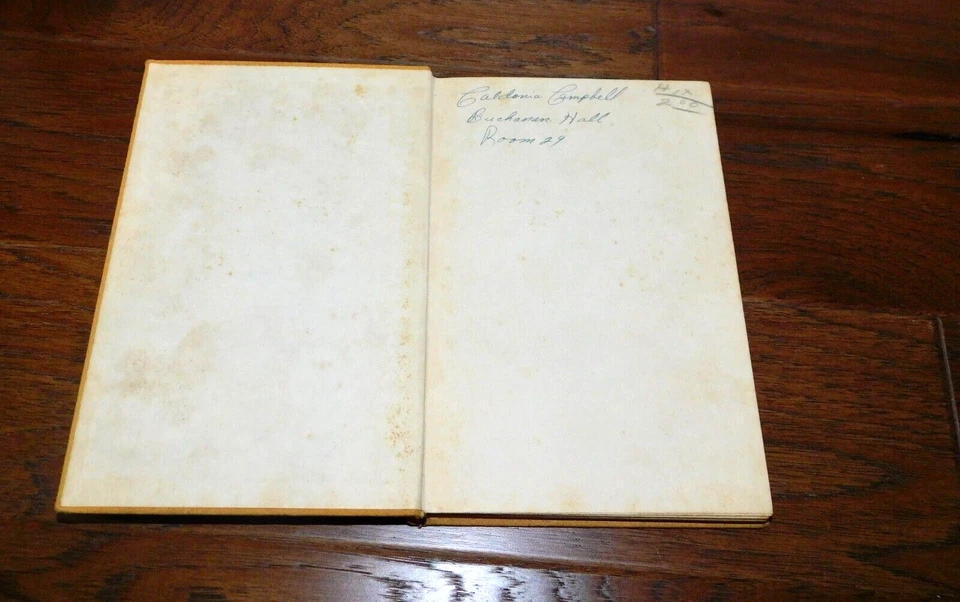 Caldonia Campbell
Buchanan Hall
Room 29
2 00